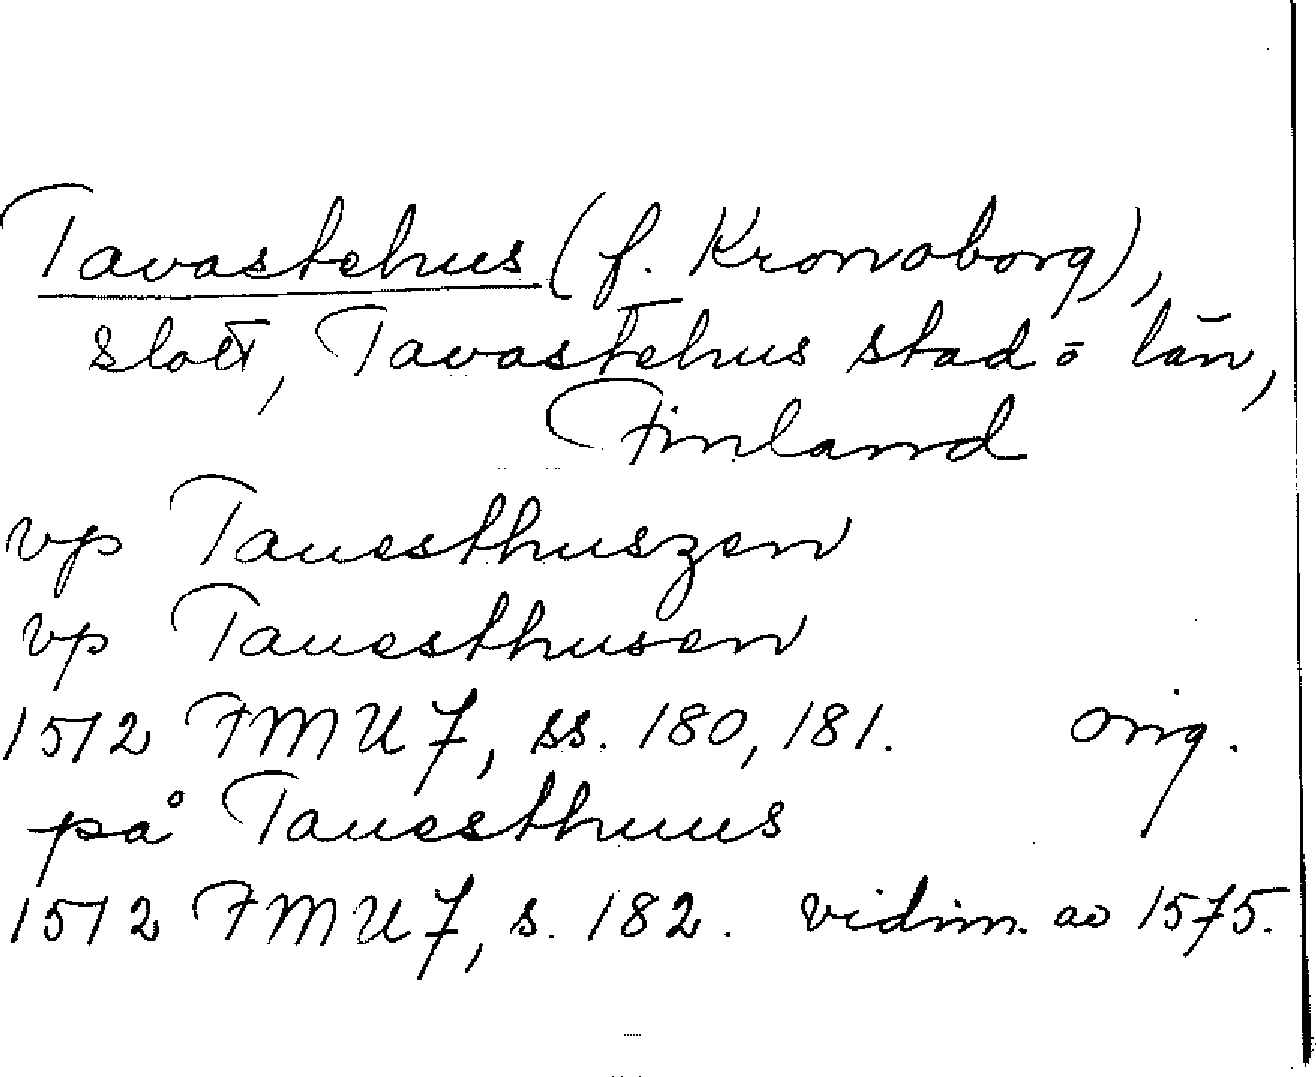 Tavastehus (f. Kronoborg),
slott, Tavastehus stad o län,
Finland
vp Tauesthuszen
vp Tauesthusen
1512 FMU 7, ss. 180, 181. orig.
på Tauesthuus
1512 FMU 7, s. 182. vidim. av 1575.